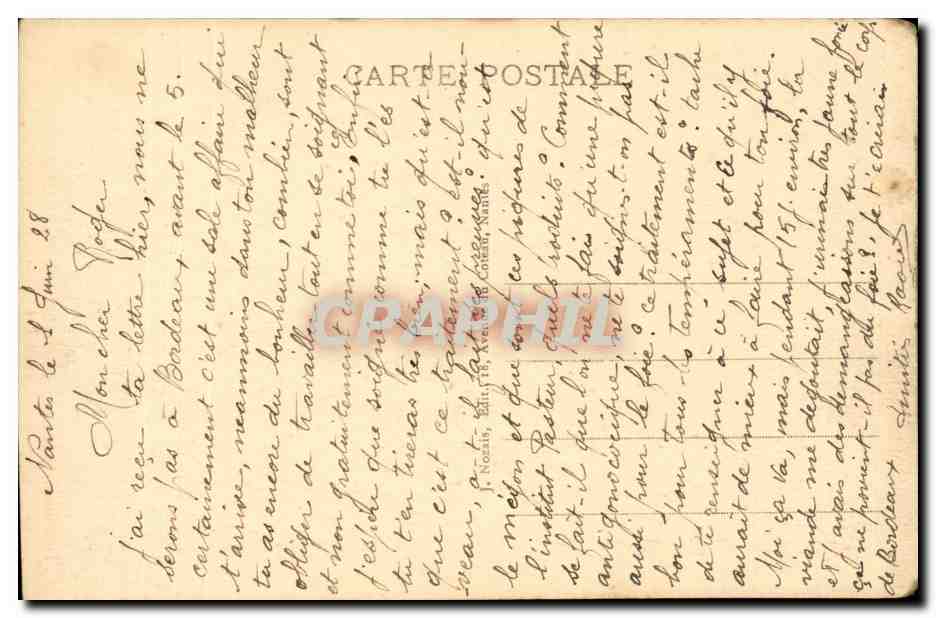 Nantes le 1 Juin 28
Mon cher Roger
J'ai reçu ta lettre hier, nous ne
serons pas à Bordeaux avant le 5.
certainement c'est une sale affaire qui
t'arrive, neanmoins dans ton malheur
tu as encore du bonheur, combien sont
obligés de travailler tout en se soignant
et non gratuitement comme toi, Enfin
j'espère que soigné comme tu l'es
tu t'en tireras très bien, mais qu'est-ce
que c'est ce traitement? est-il nou-
veau, a-t-il fait ses preuves? qu'est
le mégon et que sont ces piqures de
l'institut Pasteur, quels produits? Comment
se fait-il que l'on ne te fais qu'une piqure
antigonococcique, ne te soignit-on pas
aussi pour le foie? ce traitement est-il
bon pour tous les tempéraments? tache
de te renseigner à ce sujet et ce qu'il y
aurait de mieux à faire pour ton foie.
Moi ça va, mais pendant 15 j. environ, la
viande me dégoutait, j'urinais très jaune foncé
et j'avais des démangeaisons sur tout le corps
ça ne provient-il pas du foie?, je t'écrirais
de Bordeaux
CARTE POSTALE
J. Nozais, Edit., 18, Avenue de la Close Coteau, Nantes
CPAPHIL